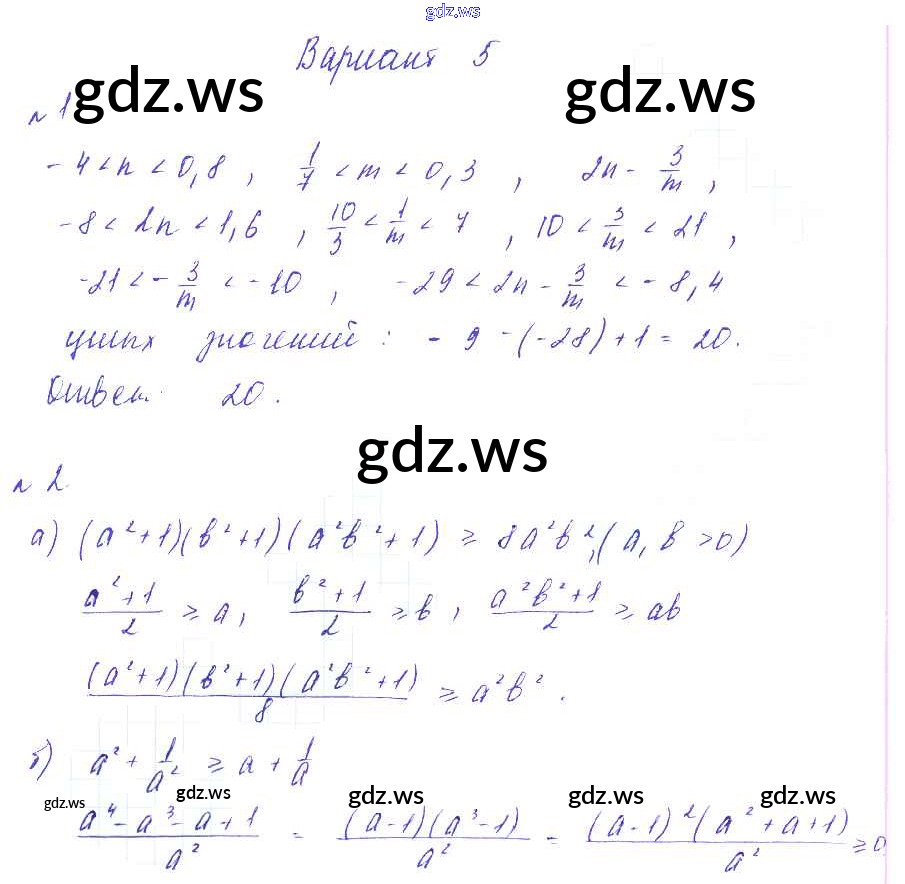 gdz.ws
Вариант 5
gdz.ws gdz.ws
№ 1
-4 < n < 0,8 , 1/7 < m < 0,3 , 2n - 3/m ,
-8 < 2n < 1,6 , 10/3 < 1/m < 7 , 10 < 3/m < 21 ,
-21 < -3/m < -10 , -29 < 2n - 3/m < -8,4
целых значений : -9 - (-28) + 1 = 20.
Ответ: 20.
gdz.ws
№ 2
а) (a²+1)(b²+1)(a²b²+1) ≥ 8a²b², (a, b > 0)
(a²+1)/2 ≥ a, (b²+1)/2 ≥ b, (a²b²+1)/2 ≥ ab
(a²+1)(b²+1)(a²b²+1)/8 ≥ a²b².
б) a² + 1/a² ≥ a + 1/a
gdz.ws gdz.ws gdz.ws gdz.ws gdz.ws
(a⁴-a³-a+1)/a² = (a-1)(a³-1)/a² = (a-1)²(a²+a+1)/a² ≥ 0